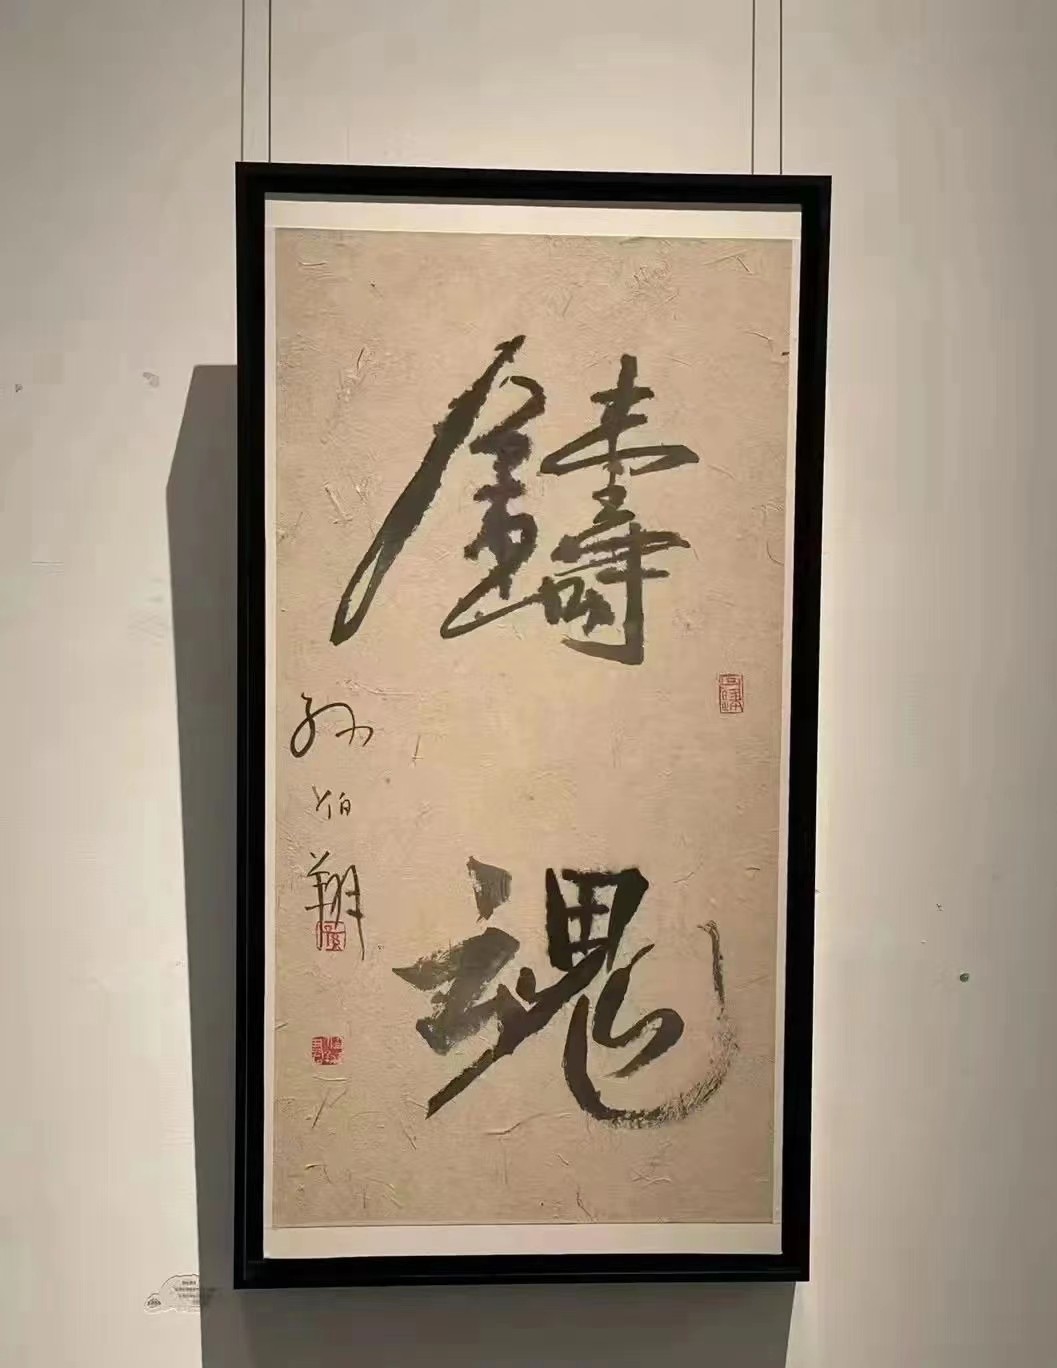 鑄魂
孙伯翔